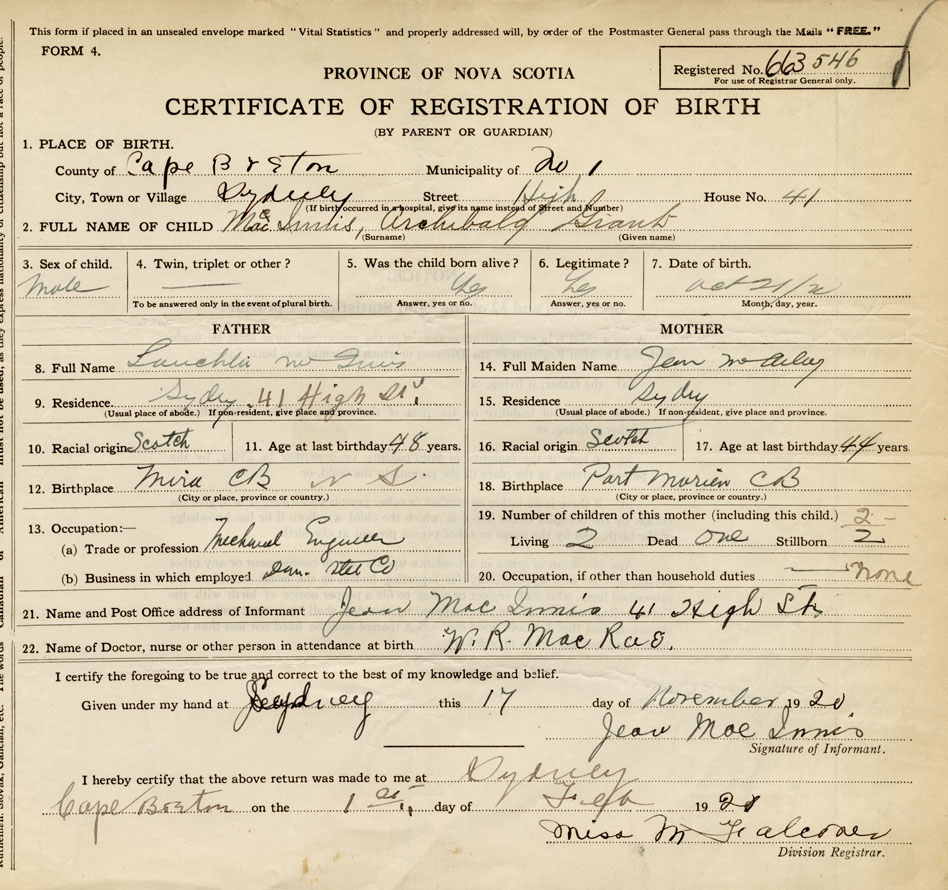 This form if placed in an unsealed envelope marked "Vital Statistics" and properly addressed will, by order of the Postmaster General pass through the Mails "FREE."
FORM 4.
Registered No. 663546
For use of Registrar General only.
PROVINCE OF NOVA SCOTIA
CERTIFICATE OF REGISTRATION OF BIRTH
(BY PARENT OR GUARDIAN)
1. PLACE OF BIRTH.
County of Cape Breton Municipality of No 1
City, Town or Village Sydney Street High House No. 41
(If birth occurred in a hospital, give its name instead of Street and Number)
2. FULL NAME OF CHILD MacInnis, Archibald Grant
(Surname) (Given name)
3. Sex of child. 4. Twin, triplet or other? 5. Was the child born alive? 6. Legitimate? 7. Date of birth.
Male Yes Yes Oct
To be answered only in the event of plural birth. Answer, yes or no. Answer, yes or no. Month, day, year.
FATHER
8. Full Name Lauchlin
9. Residence. Sydney 41 High St.
(Usual place of abode.) If non-resident, give place and province.
10. Racial origin Scotch 11. Age at last birthday 48 years.
12. Birthplace Mira CB N S.
(City or place, province or country.)
13. Occupation:—
(a) Trade or profession Engineer
(b) Business in which employed Dom. Steel Co
MOTHER
14. Full Maiden Name Jean
15. Residence Sydney
(Usual place of abode.) If non-resident, give place and province.
16. Racial origin Scotch 17. Age at last birthday 44 years
18. Birthplace Port Morien CB
(City or place, province or country.)
19. Number of children of this mother (including this child.) 2
Living 2 Dead one Stillborn
20. Occupation, if other than household duties none
21. Name and Post Office address of Informant Jean MacInnis 41 High St.
22. Name of Doctor, nurse or other person in attendance at birth W. R. MacRae.
I certify the foregoing to be true and correct to the best of my knowledge and belief.
Given under my hand at Sydney this 17 day of November 1920
Jean MacInnis
Signature of Informant.
I hereby certify that the above return was made to me at Sydney
Cape Breton on the 1st. day of Feb 1921
Miss M Falconer
Division Registrar.